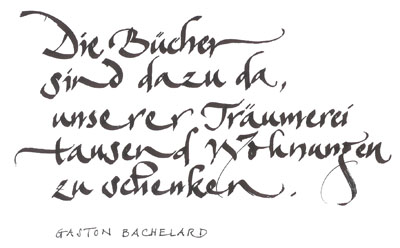 Die Bücher
sind dazu da,
unserer Träumerei
tausend Wohnungen
zu schenken.
GASTON BACHELARD